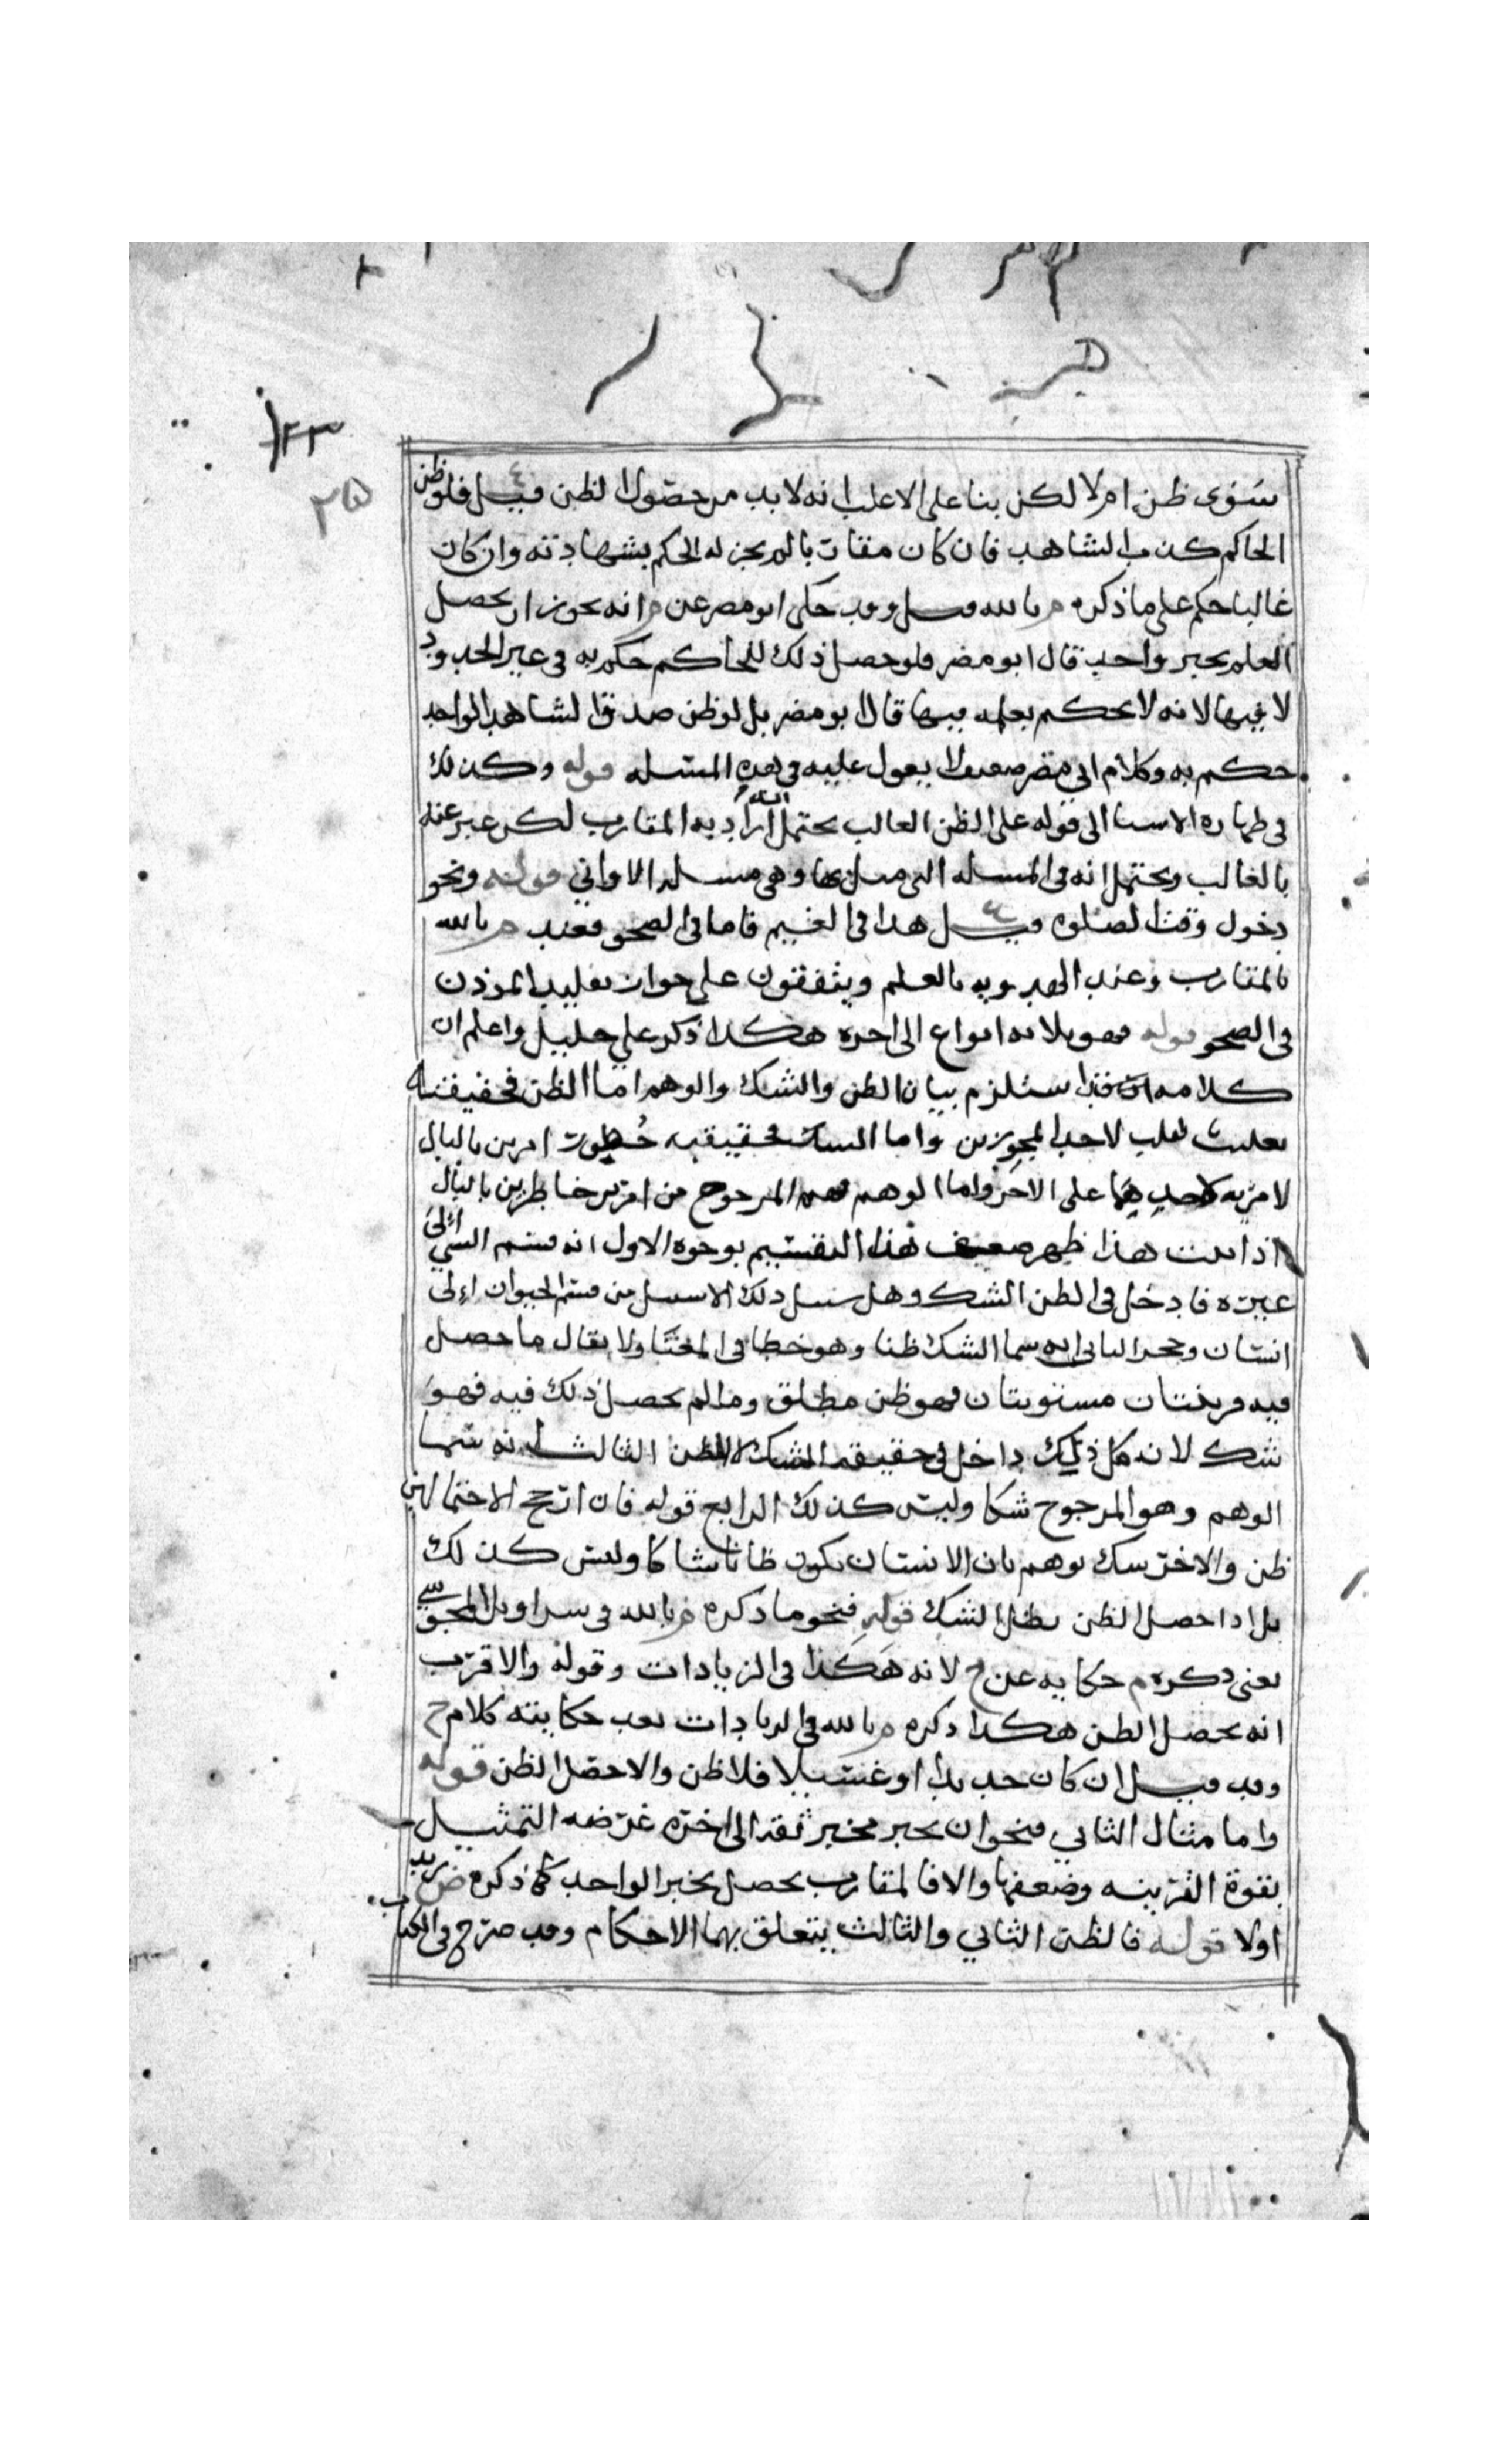 ٢٣
٢٥
سوى ظن ام لا لكن بنا على الاغلب انه لا بد من حصول الظن قيل فلو ظن
الحاكم كذب الشاهد فان كان مقاربا لم يجز له الحكم بشهادته وان كان
غالبا حكم على ما ذكره م بالله قيل وقد حكى ابو مضر عن م انه يجوز ان يحصل
العلم بخبر واحد قال ابو مضر فلو حصل ذلك للحاكم حكم به في غير الحدود
لا فيها لانه لا يحكم بعلمه فيها قال ابو مضر بل لو ظن صدق الشاهد الواحد
حكم به وكلام ابي مضر ضعيف لا يعول عليه في هذه المسئله قوله وكذلك
في طهاره الاشيا الى قوله على الظن الغالب يحتمل انه اراد به المقارب لكن عبر عنه
بالغالب ويحتمل انه في المسله التي قبلها وهي مسله الاواني قوله ونحو
دخول وقت الصلوه قيل هذا في الغيم فاما في الصحو فعند م بالله
بالمقارب وعند الهدويه بالعلم ويتفقون على جواز تقليد المؤذن
في الصحو قوله فهو ثلاثه انواع الى اخره هكذا ذكر علي خليل واعلم ان
كلامه استلزم بيان الظن والشك والوهم اما الظن فحقيقته
تغليب لاحد المجوزين واما الشك فحقيقته خطور امرين بالبال
لا مزيه لاحدهما على الاخر واما الوهم فهو المرجوح من امرين خاطرين بالبال
اذا ثبت هذا ظهر ضعف هذا التقسيم بوجوه الاول انه قسم الشي الى
غيره فادخل في الظن الشك وهل سبيل ذلك الا سبيل من قسم الحيوان الى
انسان وحجر الثاني انه سما الشك ظنا وهو خطا في المعنا ولا يقال ما حصل
فيه قرينتان مستويتان فهو ظن مطلق وما لم يحصل ذلك فيه فهو
شك لان كل ذلك داخل في حقيقه الشك لا الظن الثالث انه سما
الوهم وهو المرجوح شكا وليس كذلك الرابع قوله فان ارجح الاحتمالين
ظن والاخر شك يوهم بان الانسان يكون ظانا شاكا وليس كذلك
بل اذا حصل الظن بطل الشك قوله فنحو ما ذكره م بالله في سراويل المجوسي
يعني ذكره م حكايه عن ح لانه هكذا في الزيادات وقوله والاقرب
انه يحصل الظن هكذا ذكره م بالله في الزيادات بعد حكايته كلام ح
وقد قيل ان كان جديدا او غسيلا فلا ظن والا حصل الظن قوله
واما مثال الثاني فنحو ان يخبر مخبر ثقه الى اخره غرضه التمثيل
بقوة القرينه وضعفها والا فالمقارب يحصل بخبر الواحد كما ذكره ض زيد
اولا قوله فالظن الثاني والثالث يتعلق بهما الاحكام وقد صرح في الكتاب